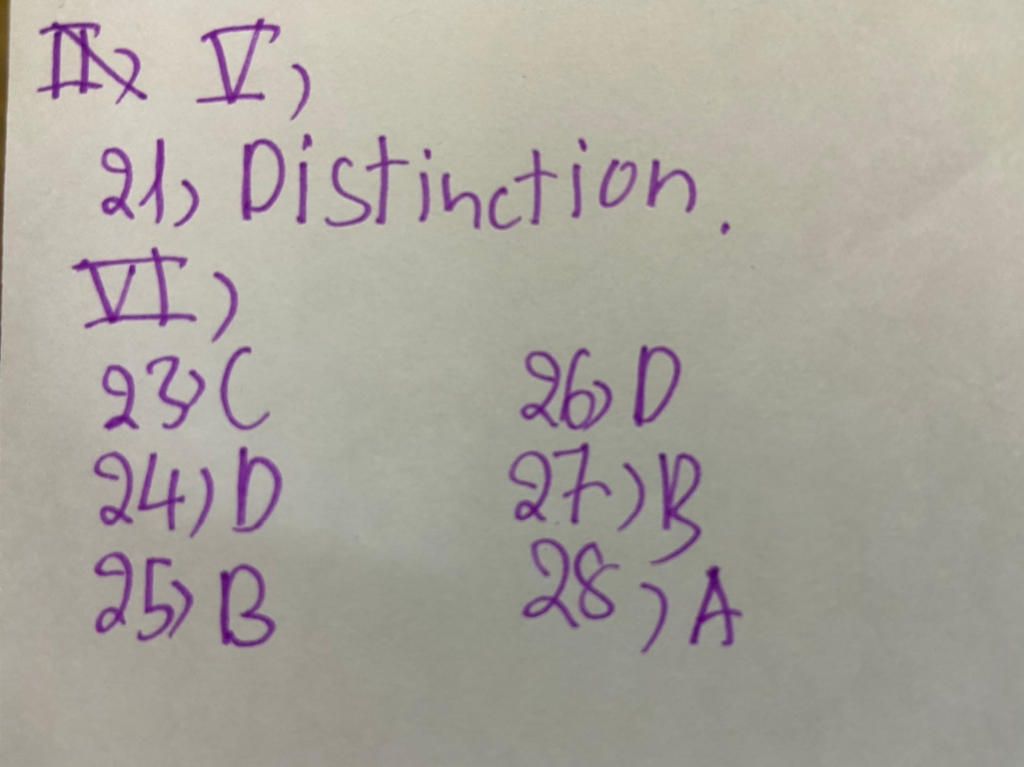 V)
21) Distinction.
VI)
23) C 26) D
24) D 27) B
25) B 28) A